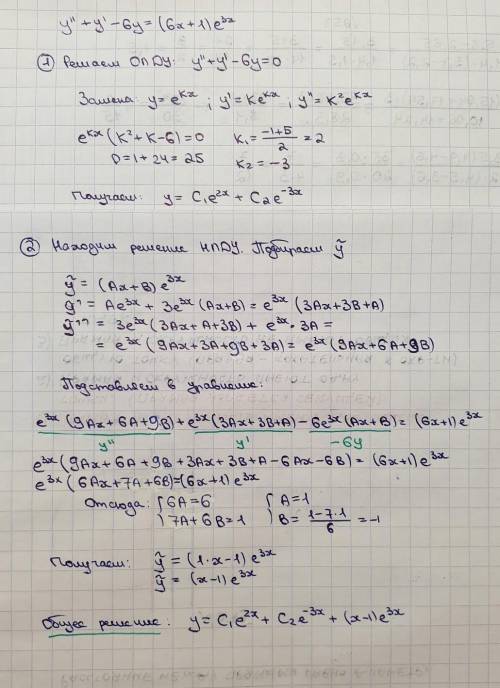 y'' + y' - 6y = (6x+1)e^{3x}
① Решаем ОЛДУ: y'' + y' - 6y = 0
Замена: y = e^{kx} ; y' = ke^{kx} ; y'' = k²e^{kx}
e^{kx}(k² + k - 6) = 0 k₁ = \frac{-1+5}{2} = 2
D = 1 + 24 = 25 k₂ = -3
Получаем: y = C₁e^{2x} + C₂e^{-3x}
② Находим решение НЛДУ. Подбираем ỹ
ỹ = (Ax+B)e^{3x}
ỹ' = Ae^{3x} + 3e^{3x}(Ax+B) = e^{3x}(3Ax+3B+A)
ỹ'' = 3e^{3x}(3Ax+A+3B) + e^{3x}·3A =
= e^{3x}(9Ax+3A+9B+3A) = e^{3x}(9Ax+6A+9B)
Подставляем в уравнение:
e^{3x}(9Ax+6A+9B) + e^{3x}(3Ax+3B+A) - 6e^{3x}(Ax+B) = (6x+1)e^{3x}
y'' y' -6y
e^{3x}(9Ax+6A+9B+3Ax+3B+A-6Ax-6B) = (6x+1)e^{3x}
e^{3x}(6Ax+7A+6B) = (6x+1)e^{3x}
Отсюда: {6A=6 {A=1
{7A+6B=1 {B = \frac{1-7·1}{6} = -1
Получаем: ỹ = (1·x-1)e^{3x}
ỹ = (x-1)e^{3x}
Общее решение: y = C₁e^{2x} + C₂e^{-3x} + (x-1)e^{3x}